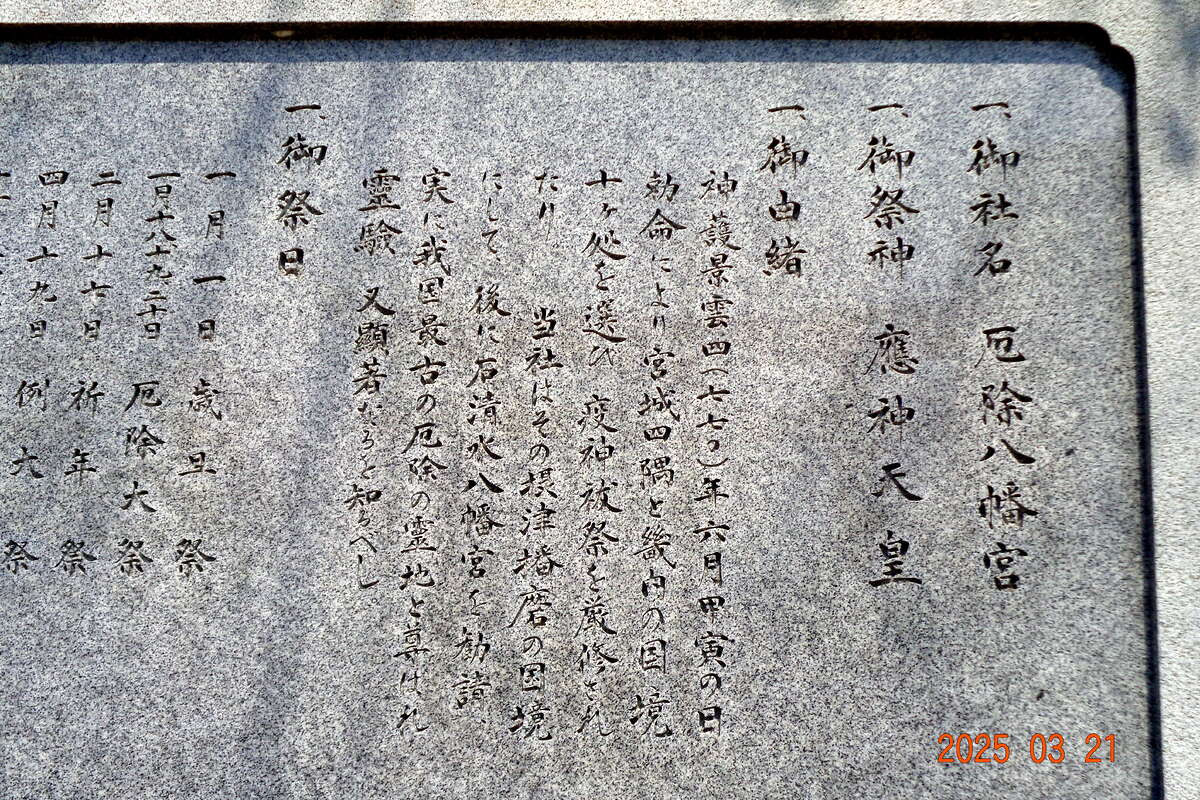 一、御社名　厄除八幡宮
一、御祭神　應神天皇
一、御由緒
神護景雲四(七七〇)年六月甲寅の日
勅命により宮城四隅と畿内の国境
十ヶ処を選び　疫神祓祭を厳修され
たり　当社はその摂津播磨の国境
にして　後に石清水八幡宮を勧請、
実に我国最古の厄除の霊地と尊はれ
霊験　又顯著なると知るへし
一、御祭日
一月　一日　歳旦祭
一月十八十九二十日　厄除大祭
二月十七日　祈年祭
四月十九日　例大祭
2025 03 21